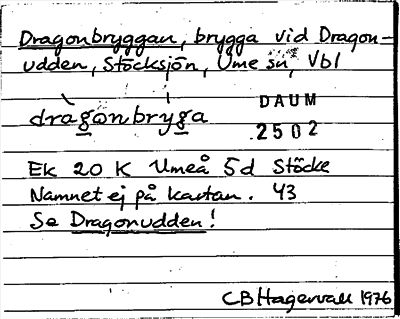 Dragonbryggan, brygga vid Dragon-
udden, Stöcksjön, Ume sn, Vbl
dràgonbrýga
DAUM
2502
Ek 20 K Umeå 5d Stöcke
Namnet ej på kartan. 43
Se Dragonudden!
CBHagervall 1976